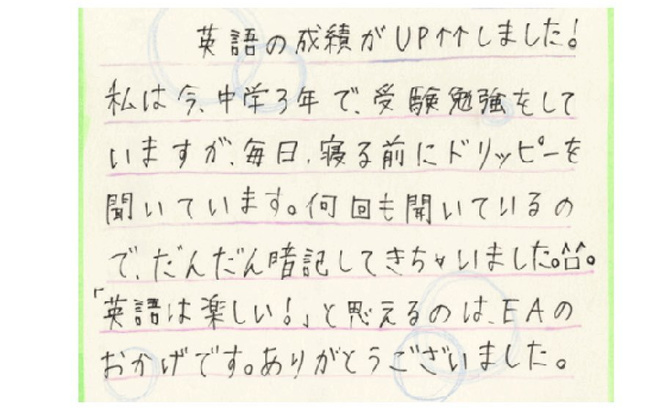 英語の成績がUP↑↑しました!
私は今、中学3年で、受験勉強をして
いますが、毎日、寝る前にドリッピーを
聞いています。何回も聞いているの
で、だんだん暗記してきちゃいました。^□^。
「英語は楽しい!」と思えるのは、EAの
おかげです。ありがとうございました。